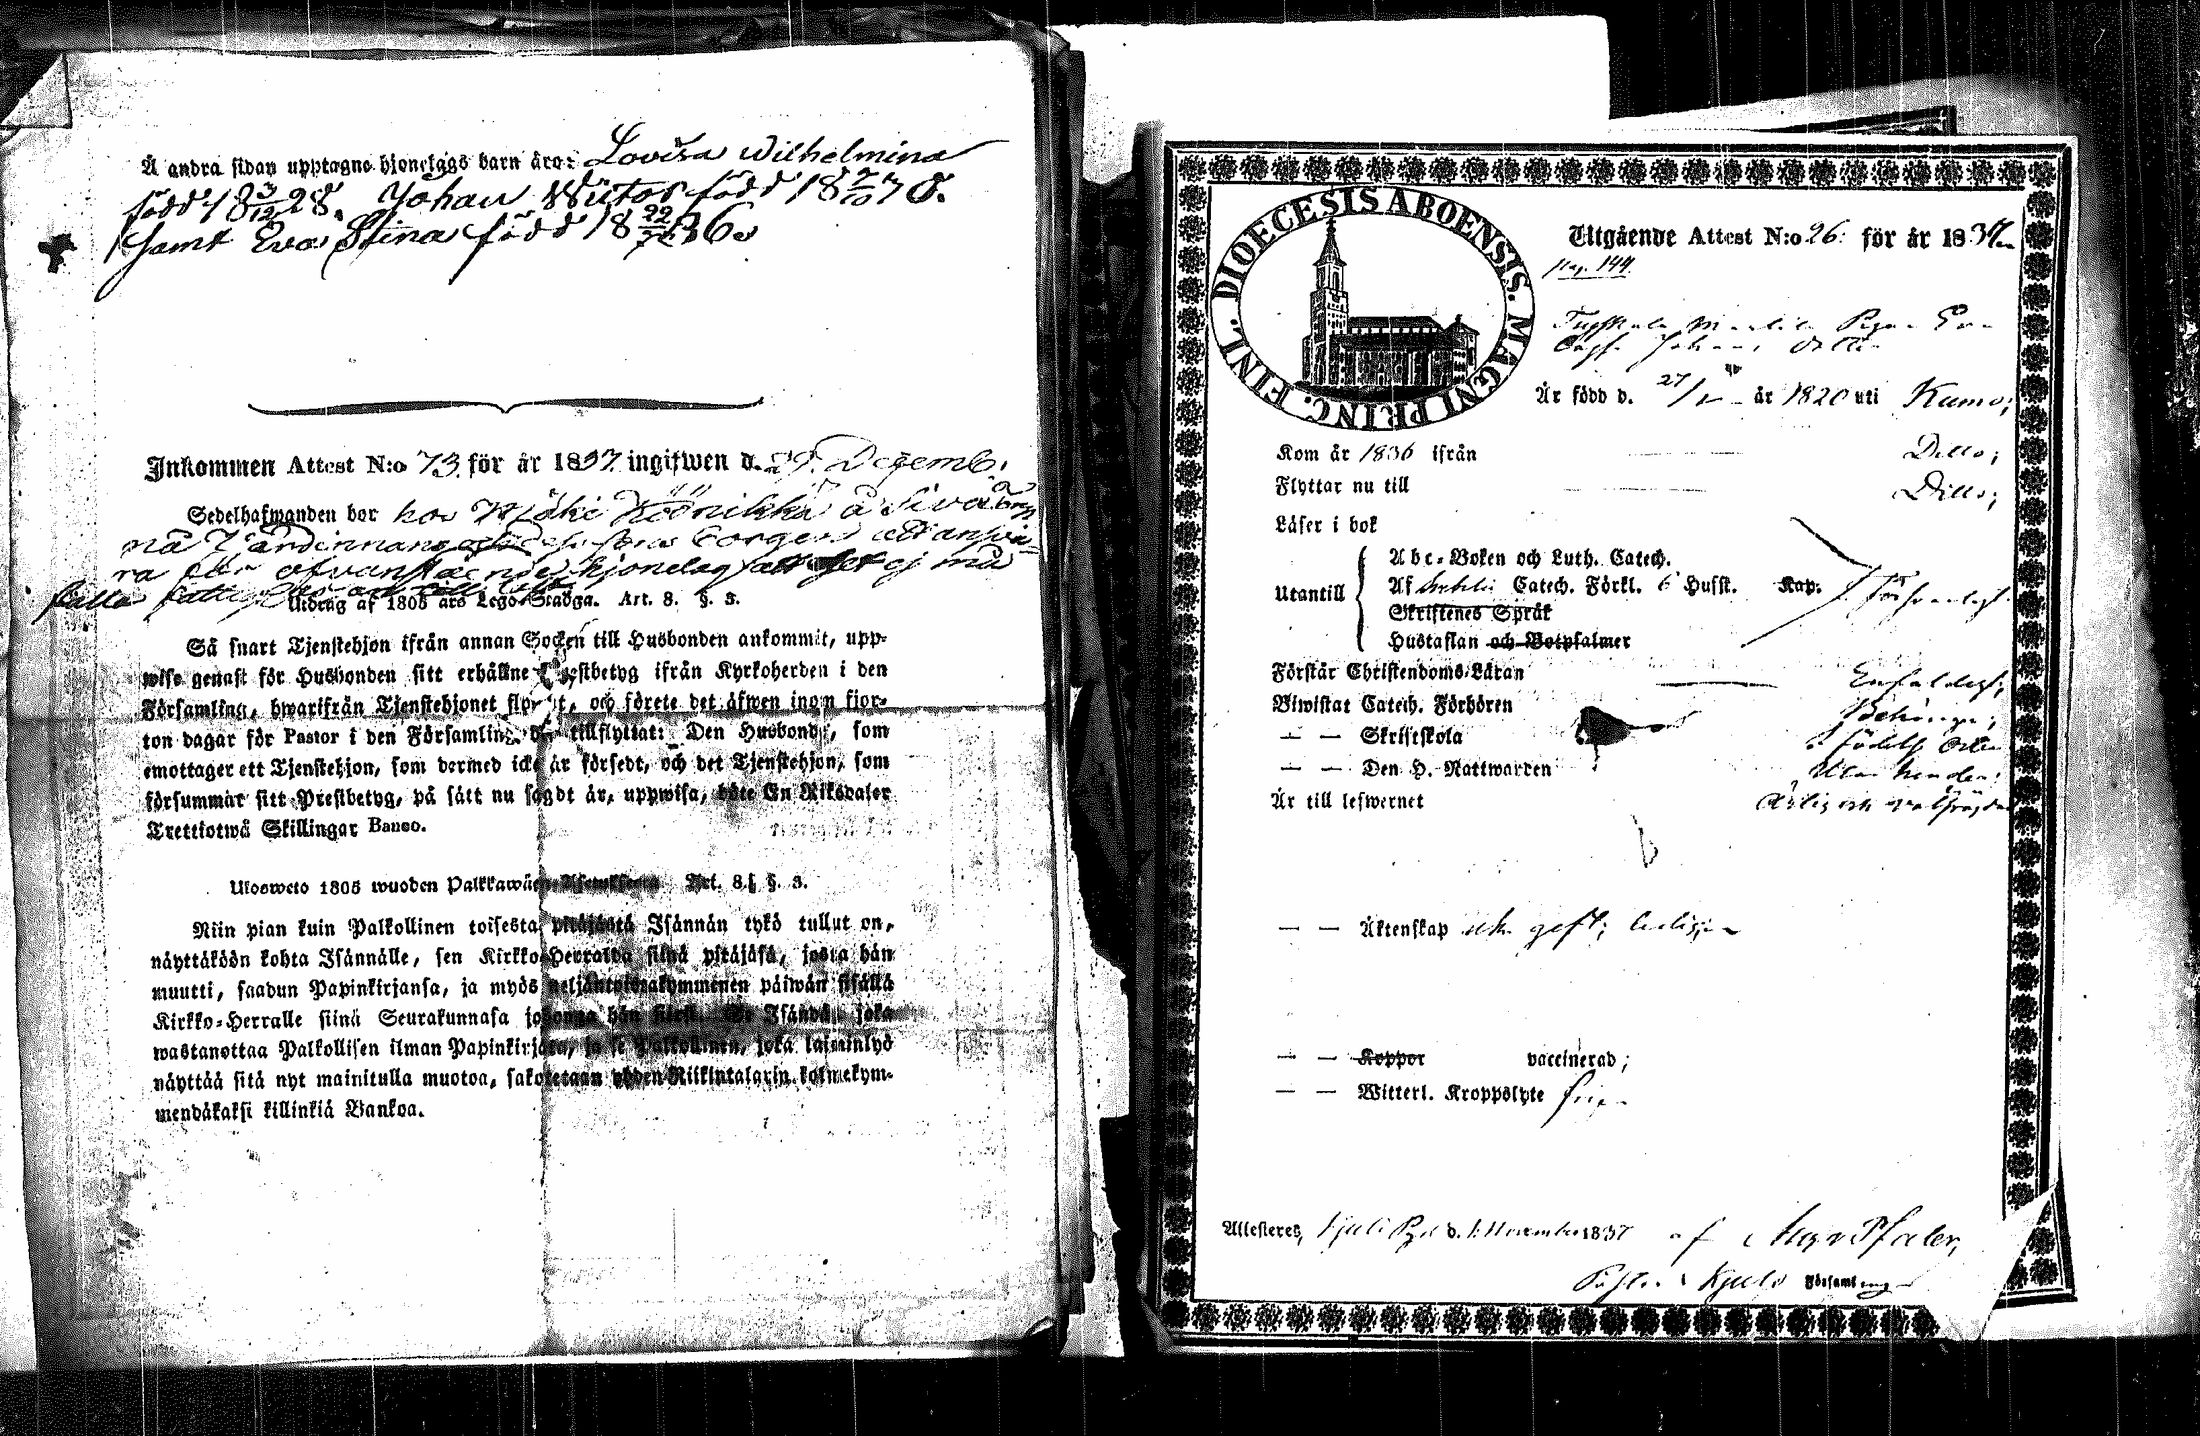 Å andra sidan upptagne hjonelags barn äro: Lovisa Wilhelmina
född 18 3/12 28. Johan Victor född 18 2/10 30.
samt Eva Stina född 18 22/ 36.
Inkommen Attest N:o 73 för år 1837 ingifwen d. 29 Decemb.
Sedelhafwanden bor hos å
ra för ofvanstående hjonelag att det ej må
falla
Utdrag af 1805 års Lego-Stadga. Art. 8. §. 3.
Så snart Tjenstehjon ifrån annan Socken till Husbonden ankommit, upp-
wise genast för Husbonden sitt erhållne Prestbetyg ifrån Kyrkoherden i den
Församling, hwarifrån Tjenstehjonet flyttat, och förete det äfwen inom fjor-
ton dagar för Pastor i den Församling dit tillflyttat: Den Husbonde, som
emottager ett Tjenstehjon, som dermed icke är försedt, och det Tjenstehjon, som
försummar sitt Prestbetyg, på sätt nu sagdt är, uppwisa, böte En Riksdaler
Trettiotwå Skillingar Banco.
Ulosweto 1805 wuoden Palkkawäen Asetuksesta Art. 8. §. 3.
Niin pian kuin Palkollinen toisesta pitäjästä Isännän tykö tullut on,
näyttäköön kohta Isännälle, sen Kirkko-Herralda siinä pitäjäsä, josta hän
muutti, saadun Papinkirjansa, ja myös neljäntoistakymmenen päiwän sisällä
Kirkko-Herralle siinä Seurakunnasa johonga hän siirsi. Se Isändä, joka
wastanottaa Palkollisen ilman Papinkirjata, ja se Palkollinen, joka laiminlyö
näyttää sitä nyt mainitulla muotoa, sakotetaan yhden Riikintalarin kolmekym-
mendäkaksi killinkiä Bankoa.
DIOECESIS ABOENSIS. MAGNI PRINC. FINL.
Utgående Attest N:o 26 för år 1837
pag. 144.
Pigan Eva
Johans Dotter
Är född d. 27/ år 1820 uti Kumo;
Kom år 1836 ifrån Ditto;
Flyttar nu till Ditto;
Läser i bok
Utantill
Abc-Boken och Luth. Catech.
Af Catech. Förkl. 6 Hufst. Kap.
Skriftenes Språk
Hustaflan och Botpsalmer
Försvarligt.
Förstår Christendoms-Läran Enfaldigt;
Biwistat Catech. Förhören Behörigen;
— — Skriftskola i födelse Orten
— — Den H. Nattwarden
Är till lefwernet Ärlig och välfrejdad
— — Äktenskap ej gift; ledig
— — Koppor vaccinerad;
— — Witterl. Kroppslyte fri
Attesteras, Kjulo d. 1 November 1837 af Pfaler,
Pastor i Kjulo Församling